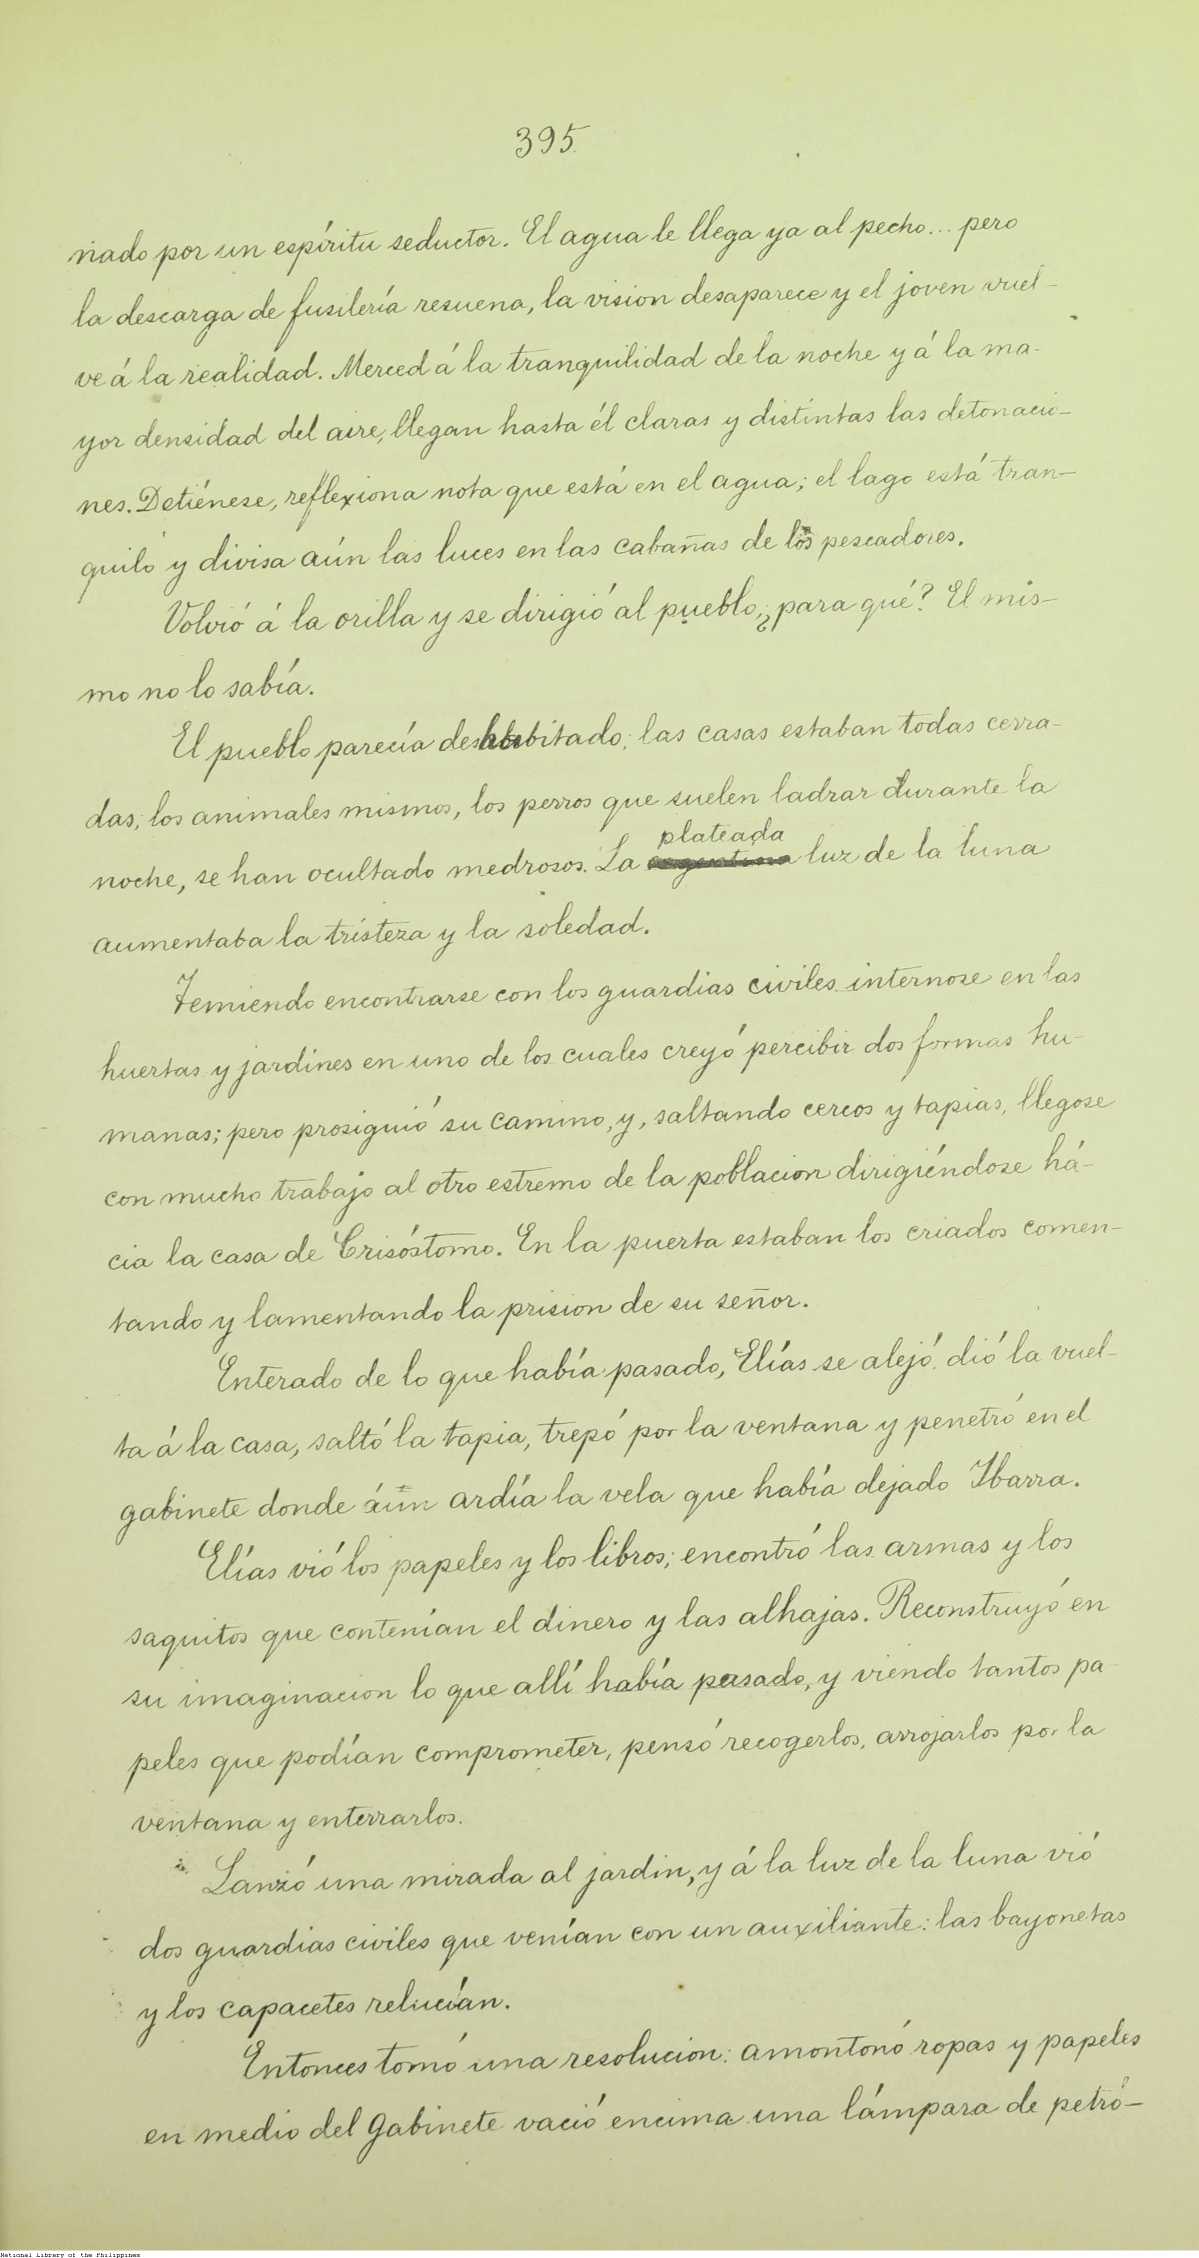 395.
nado por un espíritu seductor. El agua le llega ya al pecho... pero
la descarga de fusilería resuena, la vision desaparece y el joven vuel-
ve á la realidad. Merced á la tranquilidad de la noche y á la ma-
yor densidad del aire, llegan hasta él claras y distintas las detonacio-
nes. Detiénese, reflexiona nota que está en el agua; el lago está tran-
quilo y divisa aún las luces en las cabañas de los pescadores.
Volvió á la orilla y se dirigió al pueblo, ¿para qué? El mis-
mo no lo sabía.
El pueblo parecía deshabitado; las casas estaban todas cerra-
das; los animales mismos, los perros que suelen ladrar durante la
plateada
noche, se han ocultado medrosos. La argentina luz de la luna
aumentaba la tristeza y la soledad.
Temiendo encontrarse con los guardias civiles internose en las
huertas y jardines en uno de los cuales creyó percibir dos formas hu-
manas; pero prosiguió su camino, y, saltando cercos y tapias, llegose
con mucho trabajo al otro estremo de la poblacion dirigiéndose há-
cia la casa de Crisóstomo. En la puerta estaban los criados comen-
tando y lamentando la prision de su señor.
Enterado de lo que había pasado, Elías se alejó, dió la vuel-
ta á la casa, saltó la tapia, trepó por la ventana y penetró en el
gabinete donde áun ardía la vela que había dejado Ibarra.
Elías vió los papeles y los libros; encontró las armas y los
saquitos que contenían el dinero y las alhajas. Reconstruyó en
su imaginacion lo que allí había pasado, y viendo tantos pa
peles que podían comprometer, pensó recogerlos, arrojarlos por la
ventana y enterrarlos.
Lanzó una mirada al jardin, y á la luz de la luna vió
dos guardias civiles que venían con un auxiliante: las bayonetas
y los capacetes relucían.
Entonces tomó una resolucion: amontonó ropas y papeles
en medio del gabinete vació encima una lámpara de petró-
National Library of the Philippines